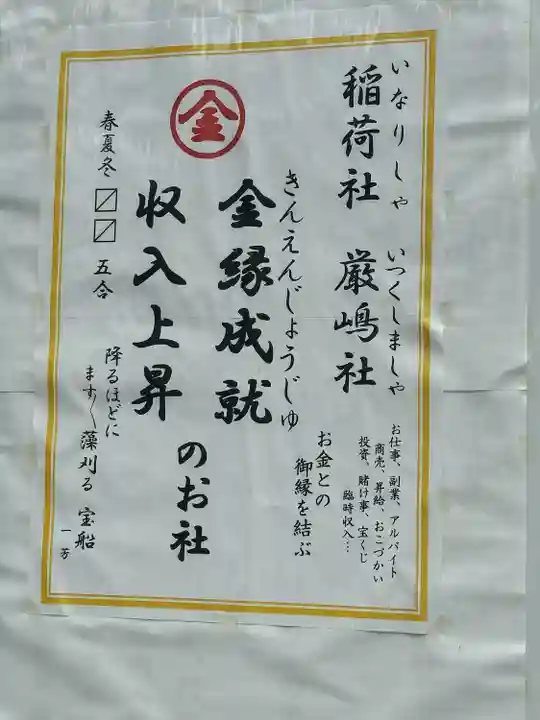 いなりしゃ いつくしましゃ
稲荷社 厳嶋社
お仕事、副業、アルバイト
商売、昇給、おこづかい
投資、賭け事、宝くじ
臨時収入…
お金との
御縁を結ぶ
きんえんじょうじゅ
金縁成就
収入上昇
のお社
金
春夏冬〼〼五合
降るほどに
ます〱藻刈る 宝船
一芳